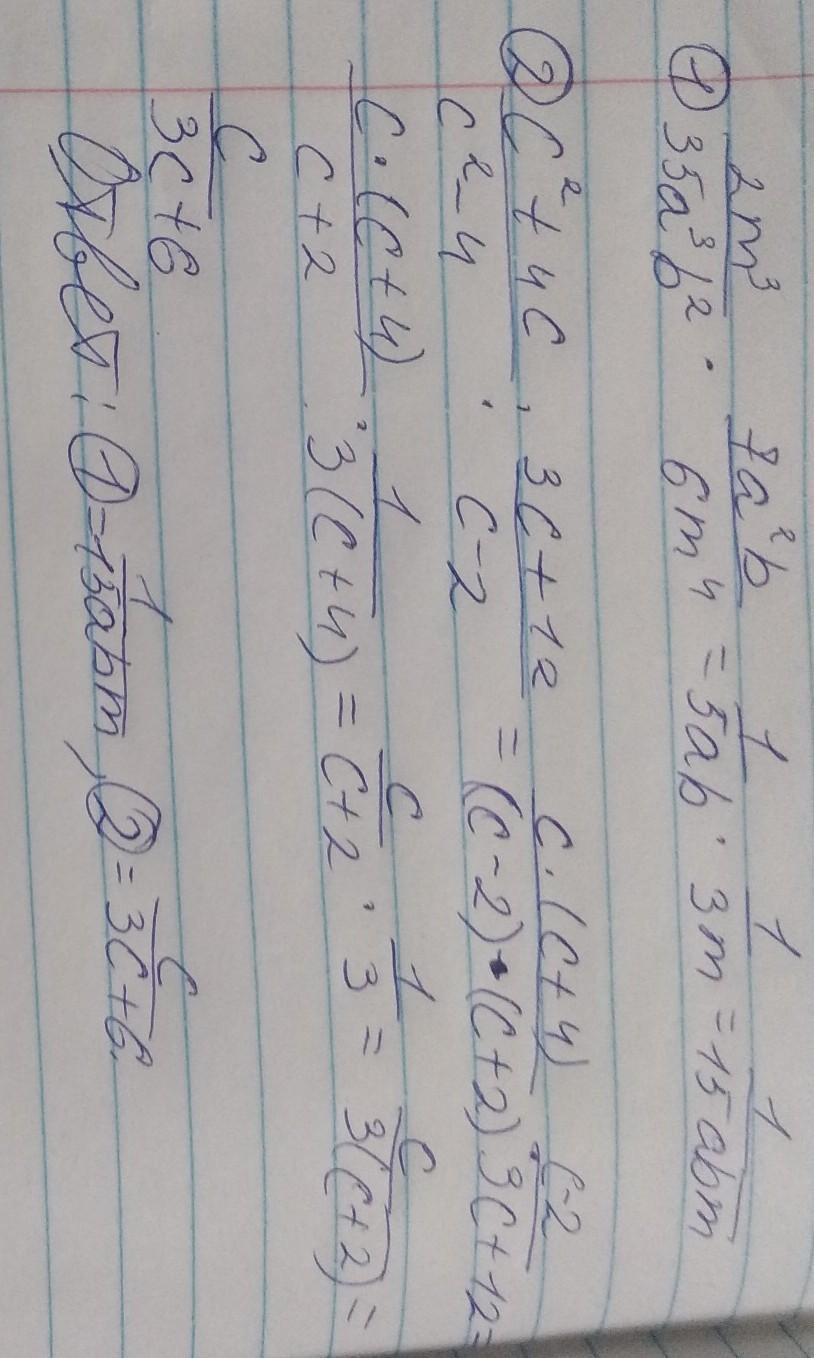 ① 2m³/35a³b² · 7a²b/6m⁴ = 1/5ab · 1/3m = 1/15abm
② c²+4c/c²-4 : 3c+12/c-2 = c·(c+4)/(c-2)·(c+2) · c-2/3c+12 =
c·(c+4)/c+2 · 1/3(c+4) = c/c+2 · 1/3 = c/3(c+2) =
c/3c+6
Ответ: ① = 1/15abm, ② = c/3c+6.